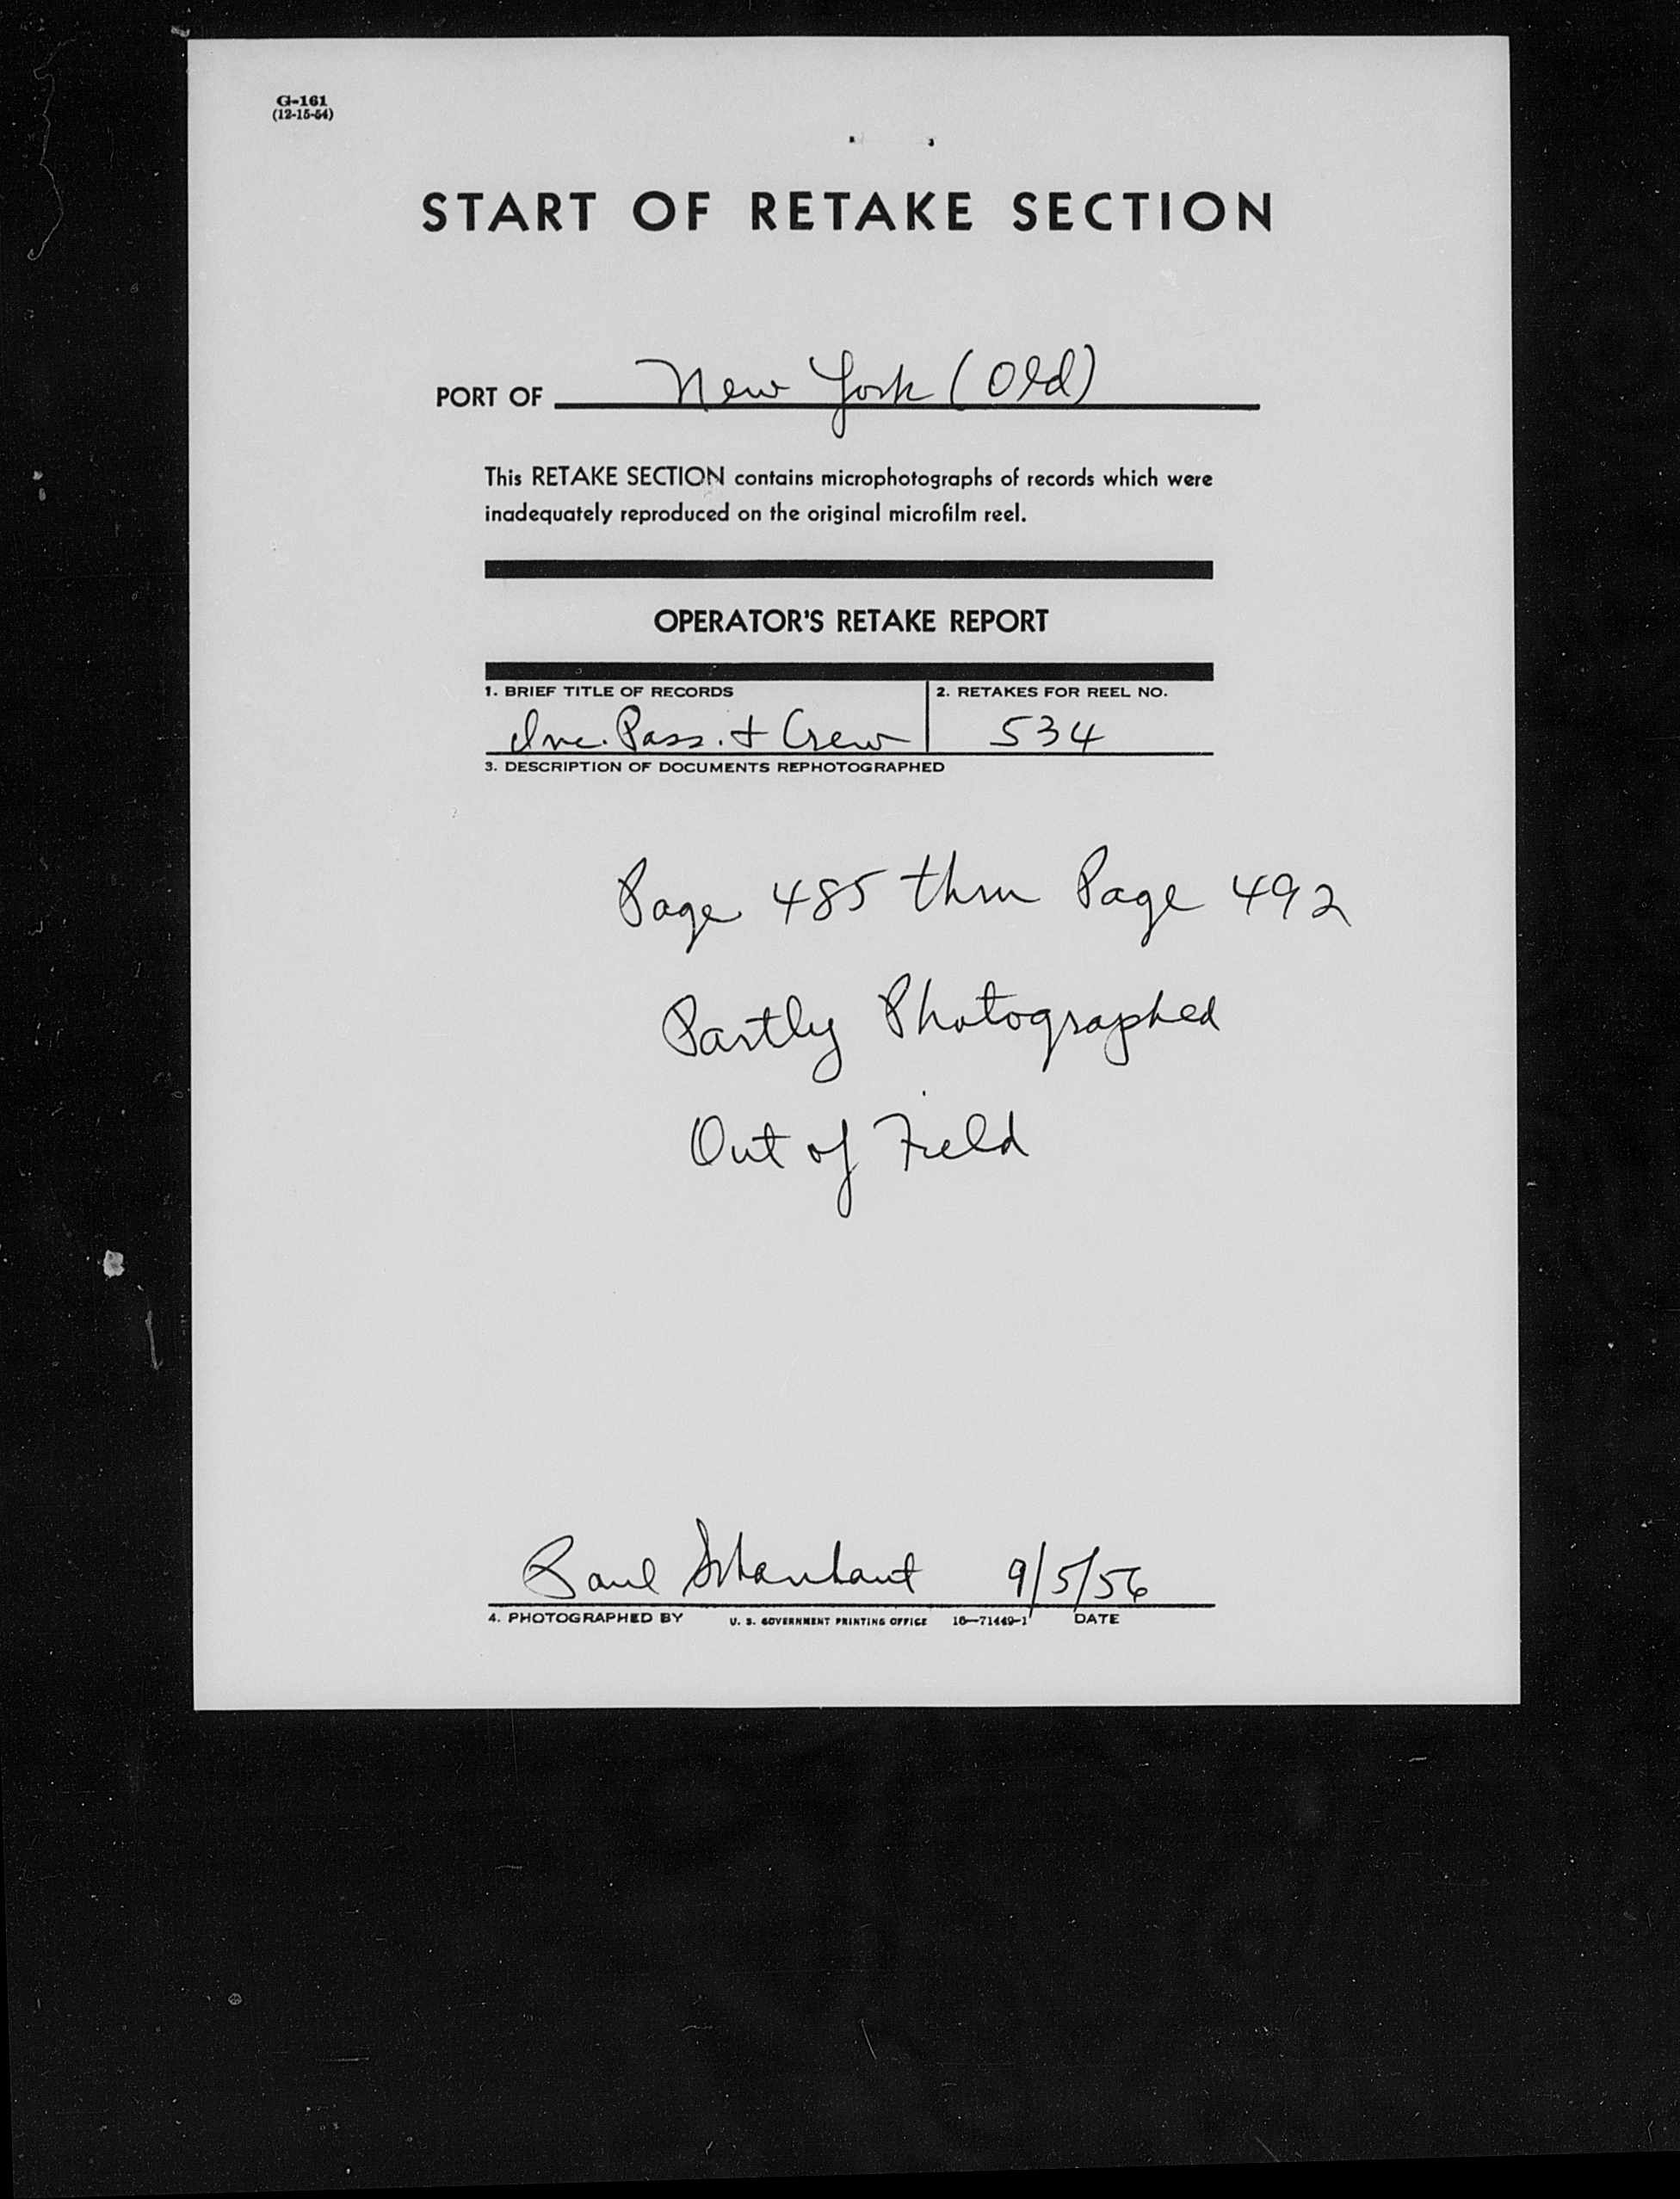 G-161
(12-15-54)
START OF RETAKE SECTION
PORT OF New York (Old)
This RETAKE SECTION contains microphotographs of records which were
inadequately reproduced on the original microfilm reel.
OPERATOR'S RETAKE REPORT
1. BRIEF TITLE OF RECORDS 2. RETAKES FOR REEL NO.
Inc. Pass. + Crew 534
3. DESCRIPTION OF DOCUMENTS REPHOTOGRAPHED
Page 485 thru Page 492
Partly Photographed
Out of Field
Paul 9/5/56
4. PHOTOGRAPHED BY U. S. GOVERNMENT PRINTING OFFICE 16—71449-1 DATE